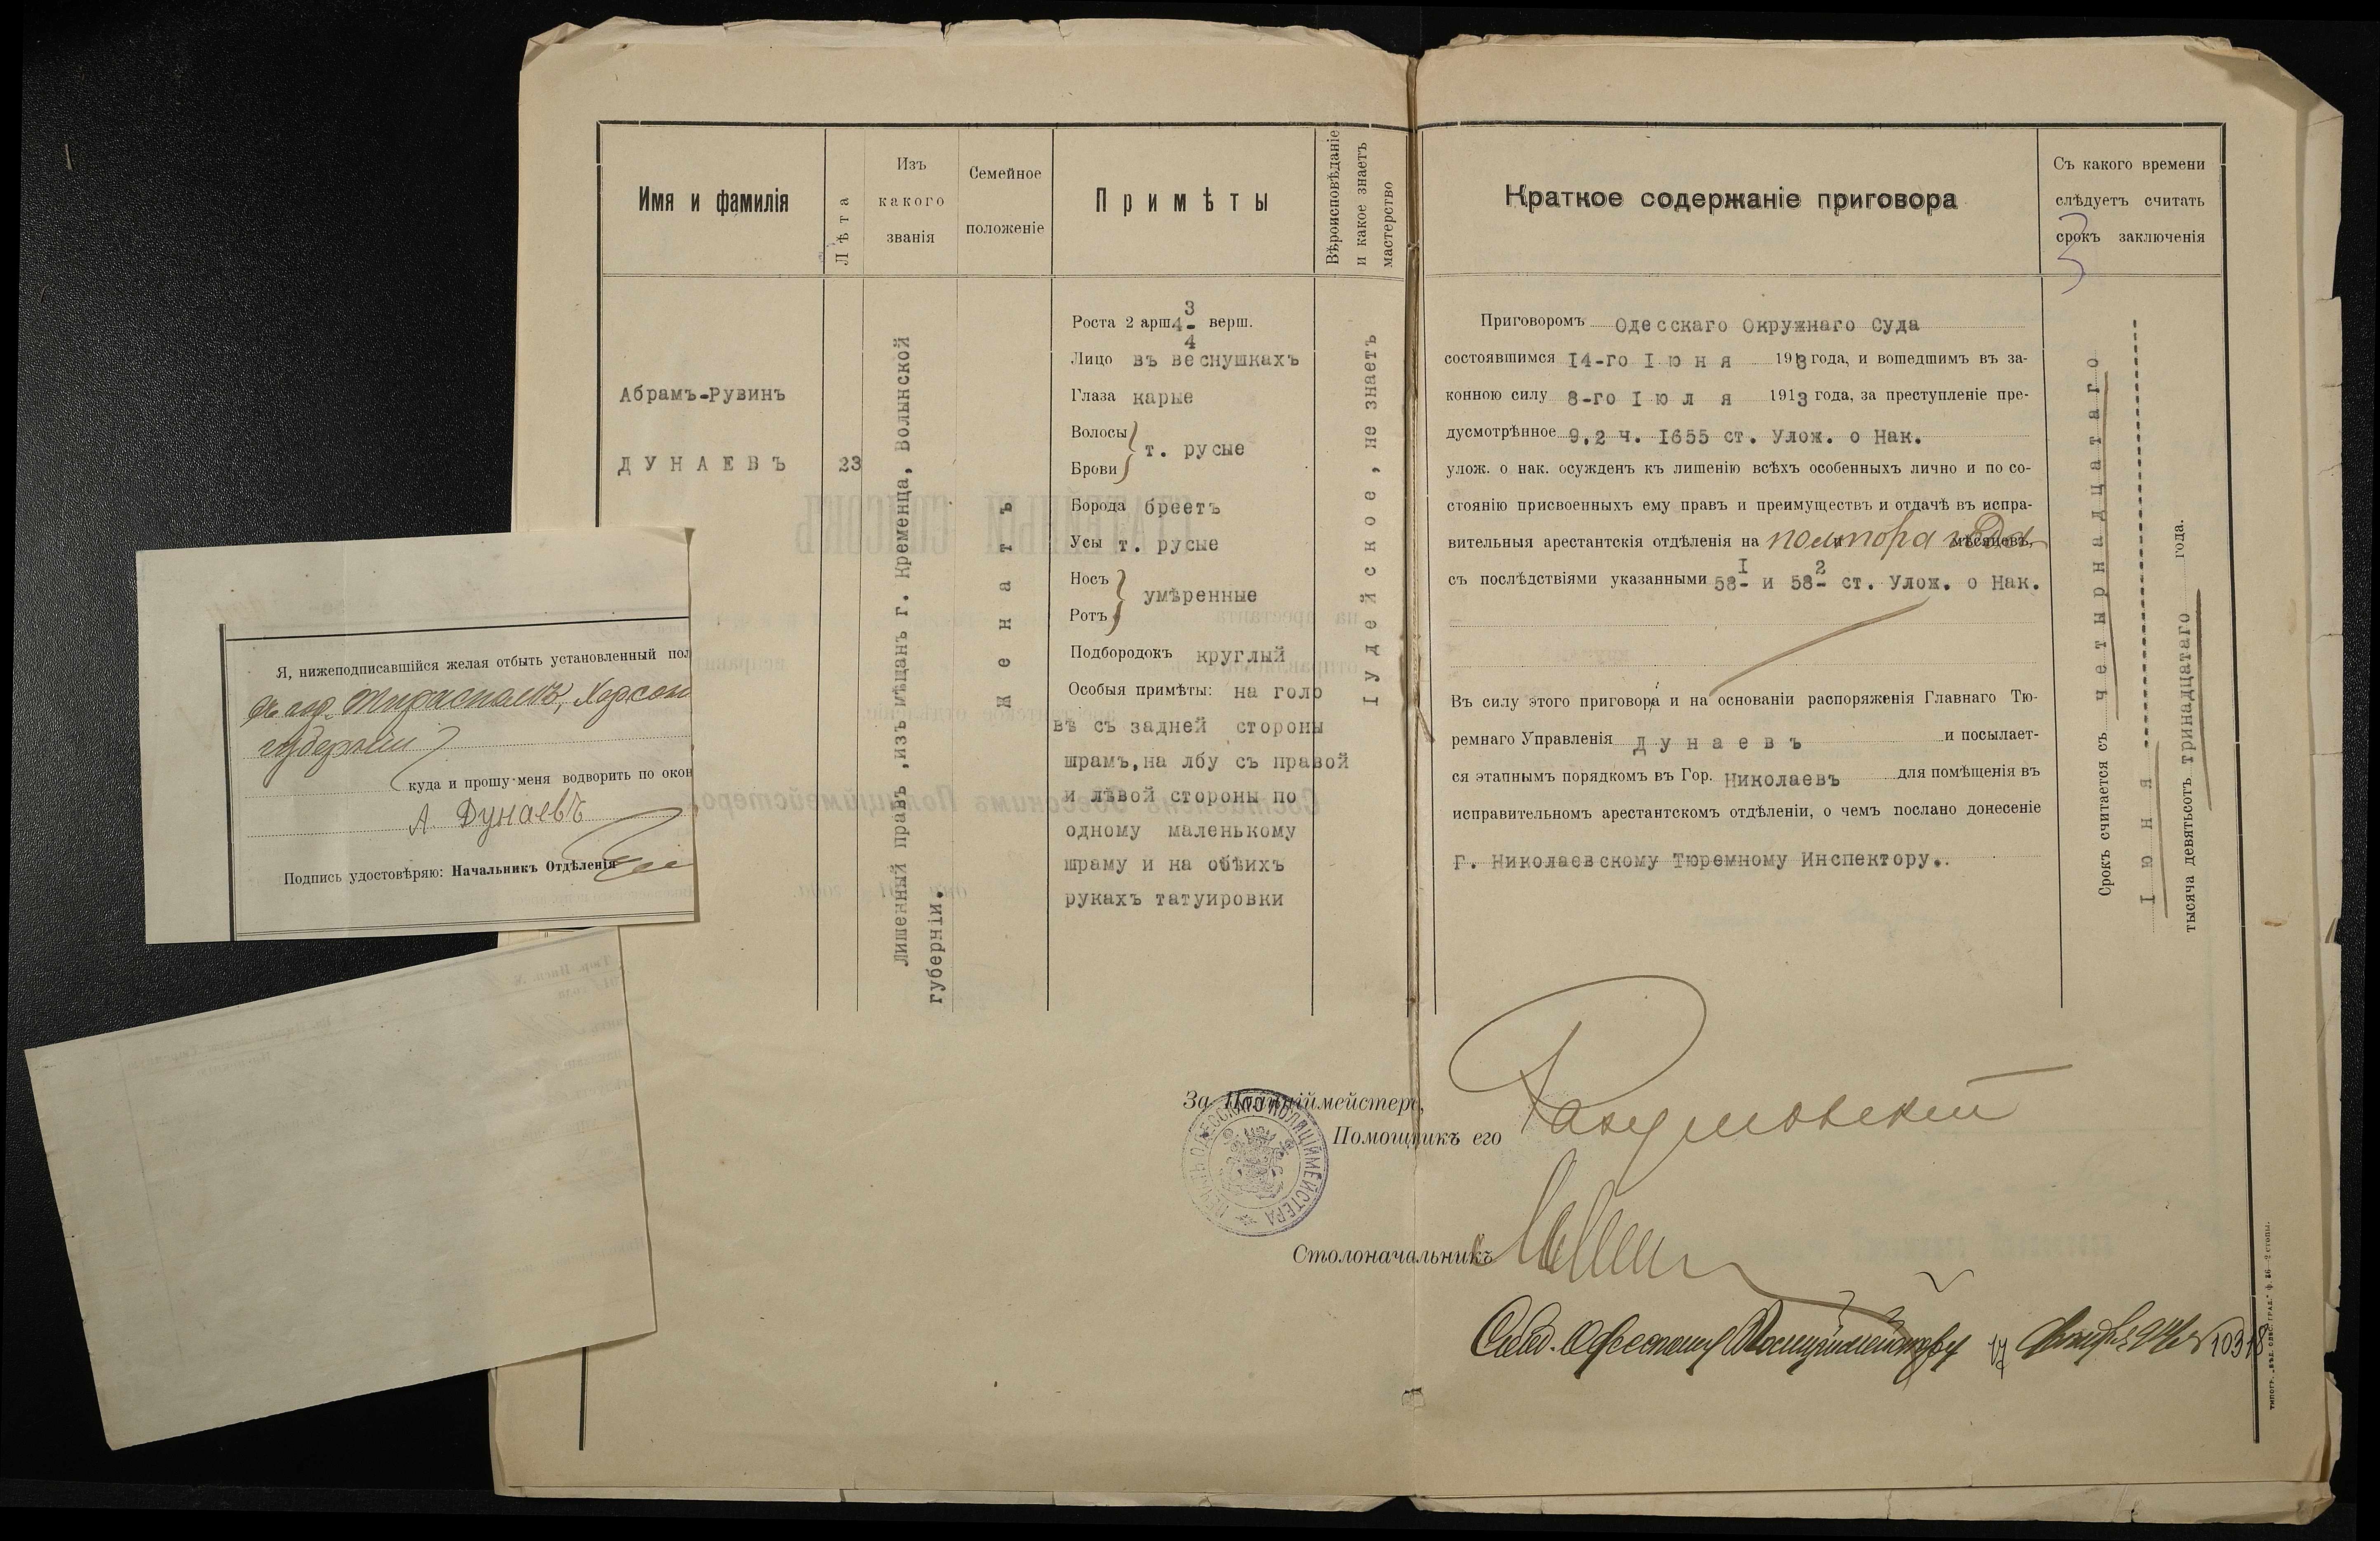 Имя и фамилія
Лѣта
Изъ
какого
званія
Семейное
положеніе
Примѣты
Вѣроисповѣданіе
и какое знаетъ
мастерство
Абрамъ-Рувинъ
ДУНАЕВЪ
23
Лишенный правъ, изъ мѣщанъ г. Кременца, Волынской
губерніи.
Женатъ
Роста 2 арш. 4 3/4 верш.
Лицо въ веснушкахъ
Глаза карые
Волосы
Брови
т. русые
Борода бреетъ
Усы т. русые
Носъ
Ротъ
умѣренные
Подбородокъ круглый
Особыя примѣты: на голо
вѣ съ задней стороны
шрамъ, на лбу съ правой
и лѣвой стороны по
одному маленькому
шраму и на обѣихъ
рукахъ татуировки
Іудейское, не знаетъ
Я, нижеподписавшійся желая отбыть установленный пол
въ гор. Тирасполь, Херсон
губерніи
куда и прошу меня водворить по окон
А. Дунаевъ
Подпись удостовѣряю: Начальникъ Отдѣленія
Краткое содержаніе приговора
Съ какого времени
слѣдуетъ считать
срокъ заключенія
Приговоромъ Одесскаго Окружнаго Суда
состоявшимся 14-го Іюня 1913 года, и вошедшимъ въ за-
конною силу 8-го Іюля 1913 года, за преступленіе пре-
дусмотрѣнное 9.2 ч. 1655 ст. Улож. о Нак.
улож. о нак. осужденъ къ лишенію всѣхъ особенныхъ лично и по со-
стоянію присвоенныхъ ему правъ и преимуществъ и отдачѣ въ испра-
вительныя арестантскія отдѣленія на полтора года мѣсяцевъ,
съ послѣдствіями указанными 58-I и 58-2 ст. Улож. о Нак.
Въ силу этого приговора и на основаніи распоряженія Главнаго Тю-
ремнаго Управленія Дунаевъ и посылает-
ся этапнымъ порядкомъ въ Гор. Николаевъ для помѣщенія въ
исправительномъ арестантскомъ отдѣленіи, о чемъ послано донесеніе
Г. Николаевскому Тюремному Инспектору.
Срокъ считается съ четырнадцатаго
Іюня
тысяча девятьсотъ тринадцатаго года.
За Полиціймейстера,
Помощникъ его
ПЕЧАТЬ ОДЕССКАГО ПОЛИЦІЙМЕЙСТЕРА
Столоначальникъ
Одесскому Полиціймейстеру 17